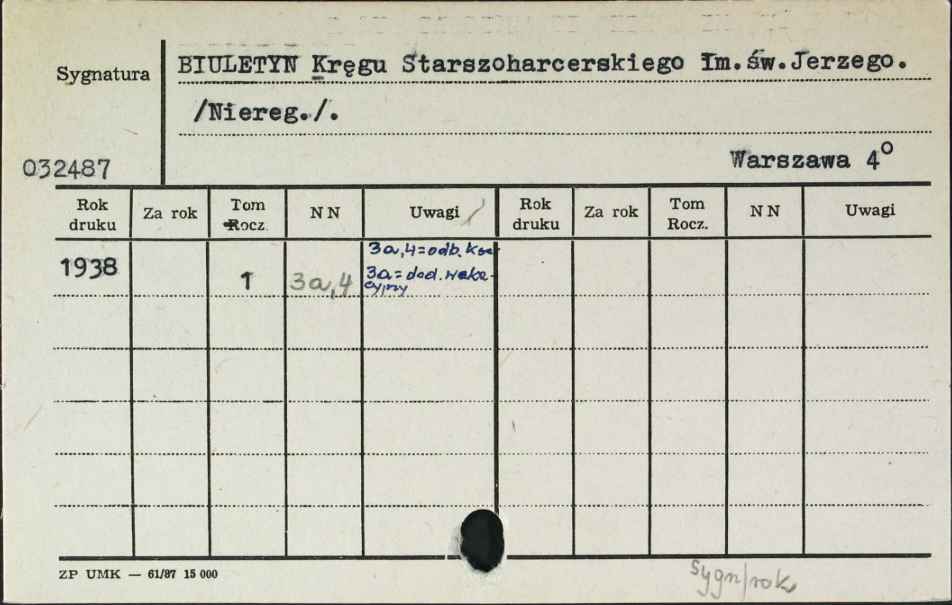 Sygnatura
BIULETYN Kręgu Starszoharcerskiego Im.św.Jerzego.
/Niereg./.
032487
Warszawa 4°
Rok druku Za rok Tom Rocz. NN Uwagi Rok druku Za rok Tom Rocz. NN Uwagi
1938 1 3a,4 3a,4=odb.
3a=dod.
ZP UMK — 61/87 15 000
Sygn/rok